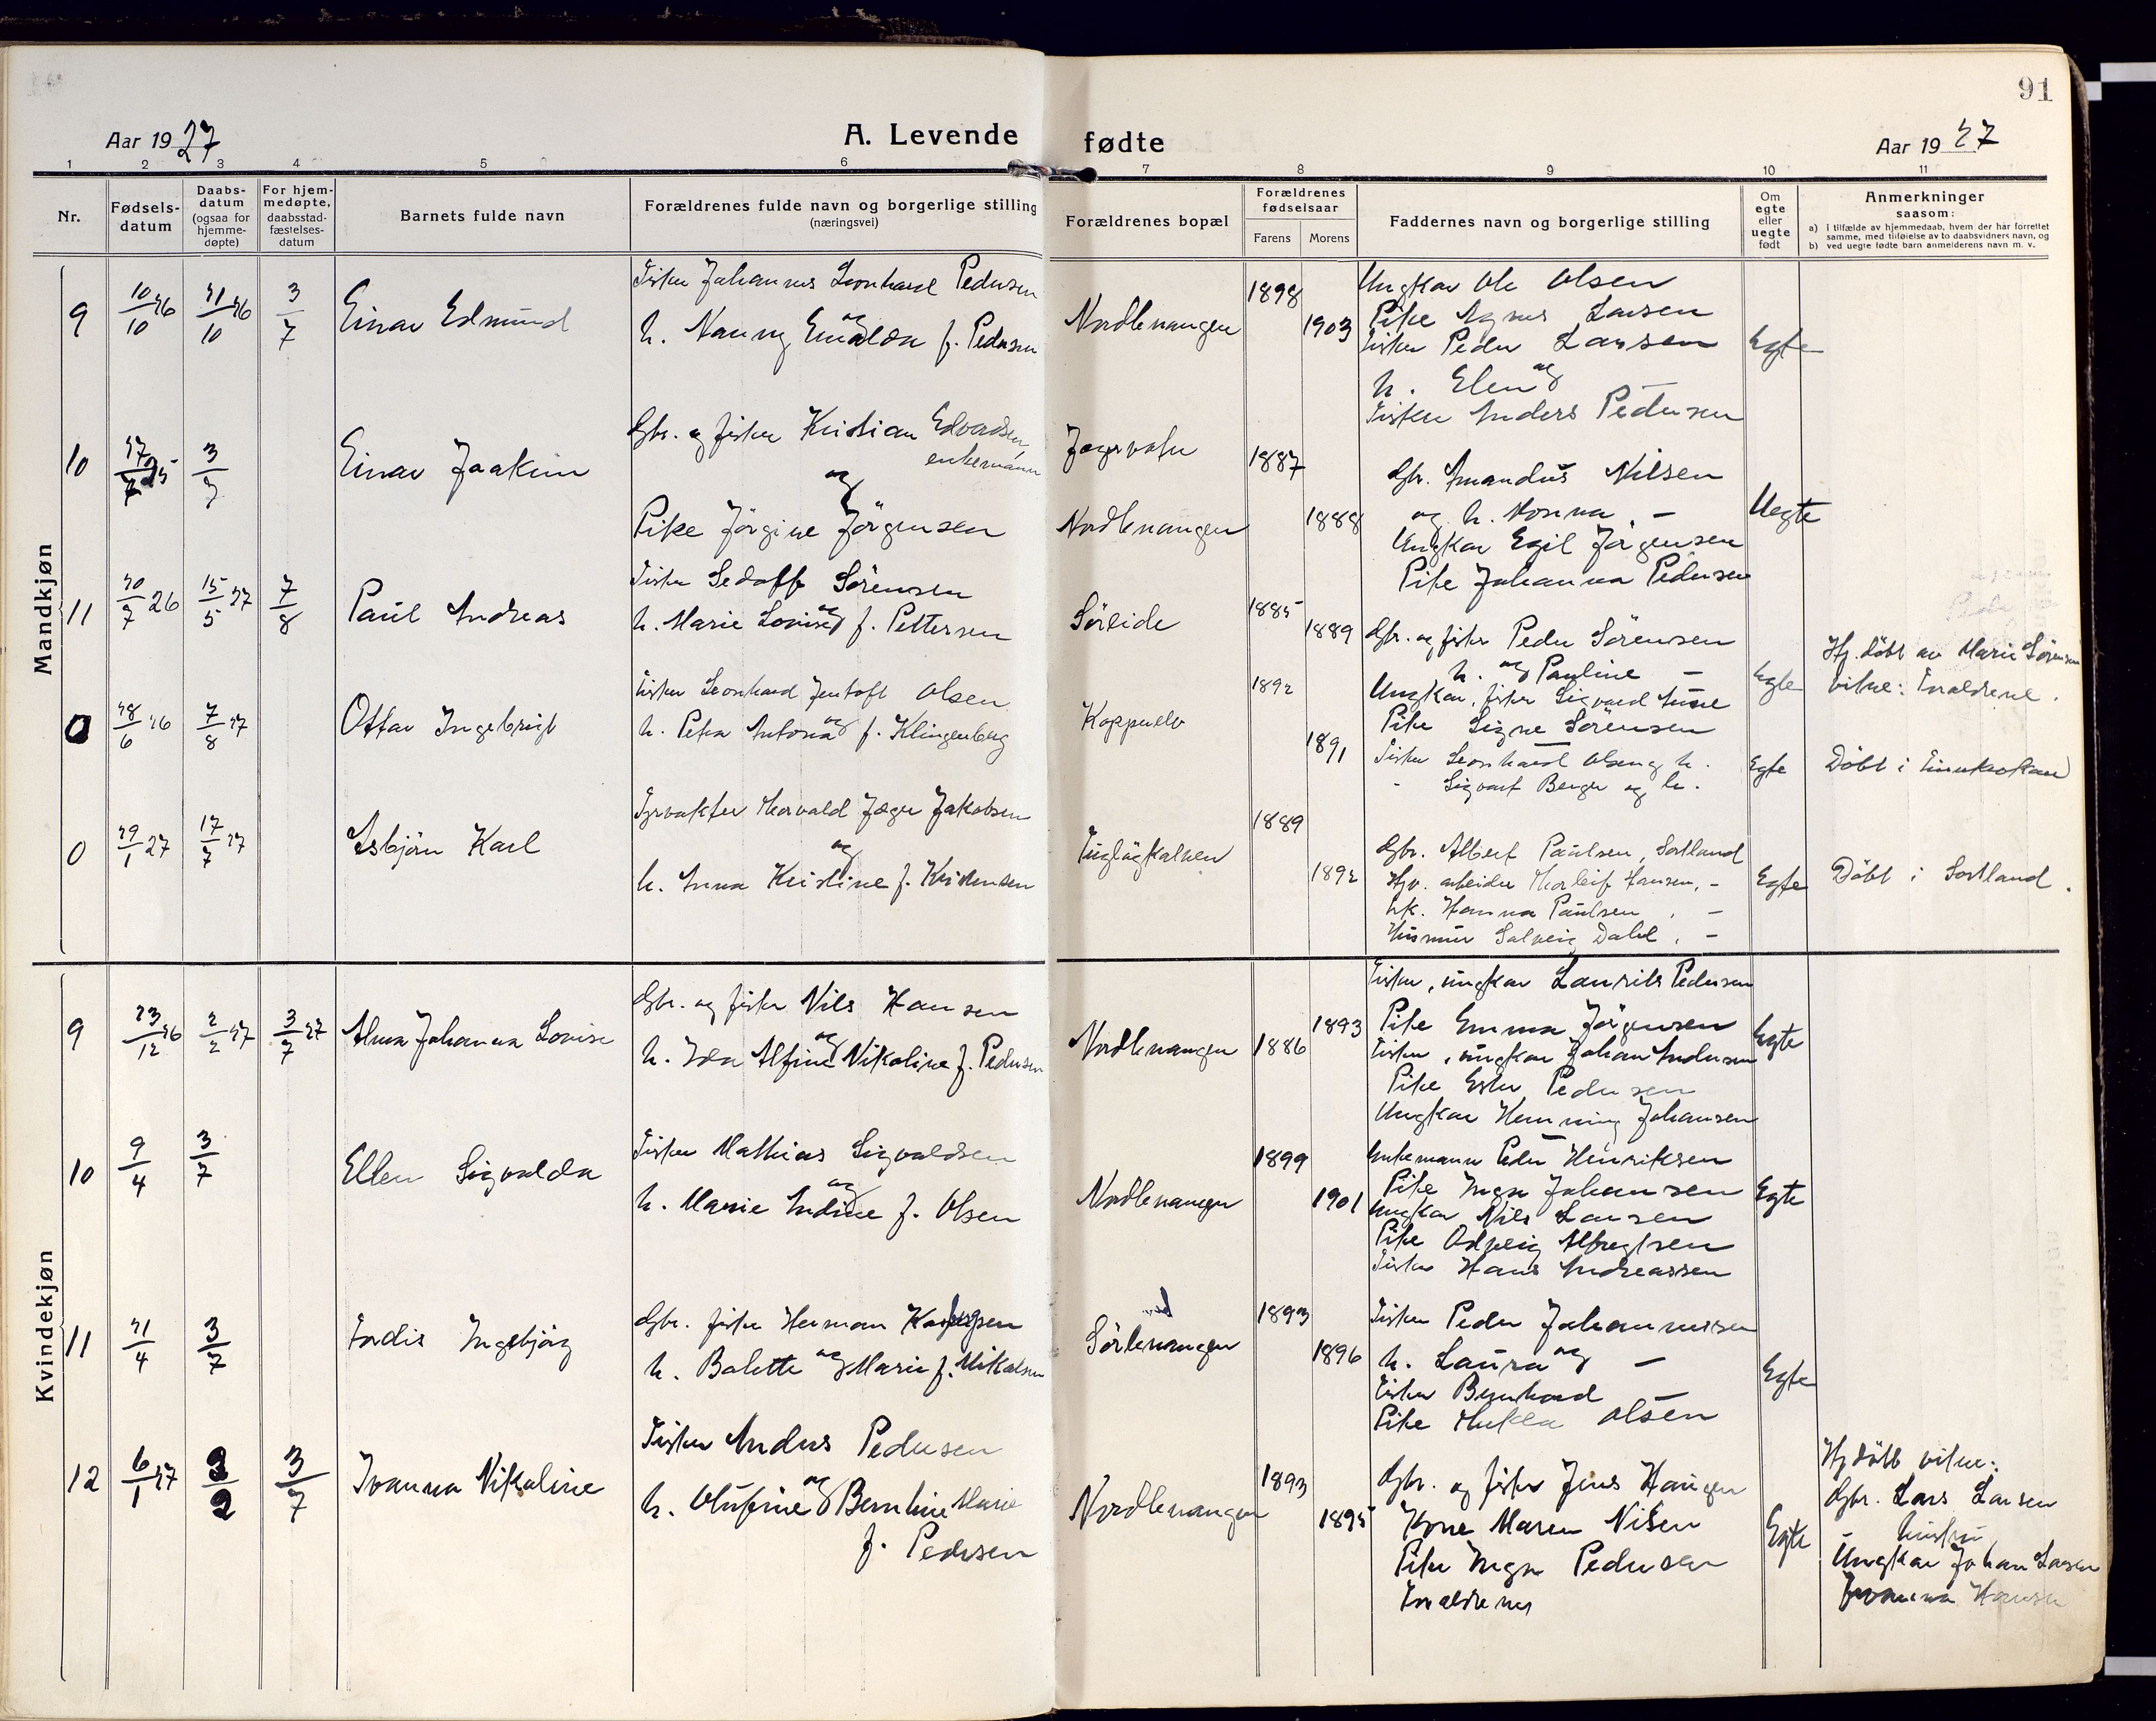 91
Aar 1927 A. Levende fødte Aar 1927
1 2 3 4 5 6 7 8 9 10 11
Nr.
Fødsels-
datum
Daabs-
datum
(ogsaa for
hjemme-
døpte)
For hjem-
medøpte,
daabsstad-
fæstelses-
datum
Barnets fulde navn
Forældrenes fulde navn og borgerlige stilling
(næringsvei)
Forældrenes bopæl
Forældrenes
fødselsaar
Farens Morens
Faddernes navn og borgerlige stilling
Om
egte
eller
uegte
født
Anmerkninger
saasom:
a) i tilfælde av hjemmedaab, hvem der har forrettet
samme, med tilføielse av to daabsvidners navn, og
b) ved uegte fødte barn anmelderens navn m. v.
Mandkjøn
9 10/10 26 31/10 26 3/7
Einar Edmund
Fisker Johannes Leonhard Pedersen
og
h. Nanny Enalda f. Pedersen
Nordlenangen
1898
1903
Ungkar Ole Olsen
Pike Agnes Larsen
Fisker Peder Larsen
og
h. Elen
Fisker Anders Pedersen
Egte
10 17/7 25 3/7
Einar Joakim
Gbr. og fisker Kristian Edvardsen
enkemann
og
Pike Jörgine Jörgensen
Jægervatn
Nordlenangen
1887
1888
Gbr. Amandus Nilsen
og h. Monna –
Ungkar Egil Jörgensen
Pike Johanna Pedersen
Uegte
11 30/7 26 15/5 27 7/8
Paul Andreas
Fisker Sedolff Sörensen
og
h. Marie Lovise f. Pettersen
Söreide
1885
1889
Gbr. og fisker Peder Sörensen
h. og Pauline –
Ungkar, fisker Sigvard Aune
Pike Signe Sörensen
Egte
Hj. döbt av Marie Sörensen
vitne: Foreldrene.
0 28/6 26 7/8 27
Ottar Ingebrigt
Fisker Leonhard Jentoft Olsen
og
h. Petra Antona f. Klingenberg
Koppuelv
1892
1891
Fisker Leonhard Olsen og h.
- Sigvart Berger og h.
Egte
Döbt i Finnkroken
0 29/1 27 17/7 27
Asbjörn Karl
Fyrvakter Thorvald Jæger Jakobsen
og
h. Anna Kristine f. Kristensen
Fuglöykalven
1889
1892
Gbr. Albert Paulsen, Sortland
Hjv. arbeider Thorleif Hansen, –
hk. Hanna Paulsen, –
Husmor Solveig Dahl, –
Egte
Döbt i Sortland.
Kvindekjøn
9 23/12 26 2/2 27 3/7 27
Alma Johanna Lovise
Gbr. og fisker Nils Hansen
og
h. Ida Alfine Nikoline f. Pedersen
Nordlenangen
1886
1893
Fisker, ungkar Laurits Pedersen
Pike Emma Jörgensen
Fisker, ungkar Johan Andersen
Pike Ester Pedersen
Ungkar Henning Johansen
Egte
10 9/4 3/7
Ellen Sigvalda
Fisker Mathias Sigvaldsen
og
h. Marie Andine f. Olsen
Nordlenangen
1899
1901
Enkemann Peder Henriksen
Pike Inga Johansen
Ungkar Nils Larsen
Pike Odveig Alfregtsen
Fisker Hans Andreassen
Egte
11 21/4 3/7
Jordis Ingebjörg
Gbr. fisker Herman Kaspersen
h. Balette og Marie f. Mikalsen
Sörlenangen
1893
1896
Fisker Peder Johannessen
h. Laura og –
Fisker Bernhard
Pike Thekla Olsen
Egte
12 6/1 27 2/2 3/7
Ivanna Nikoline
Fisker Anders Pedersen
og
h. Olufine Berntine Marie
f. Pedersen
Nordlenangen
1893
1895
Gbr. og fisker Jens Haugen
Kone Maren Nilsen
Pike Inga Pedersen
Foreldrenes
Egte
Hjdöbt vitne:
Gbr. Lars Larsen
– hustru
Ungkar Johan Larsen
Jovanna Hansen